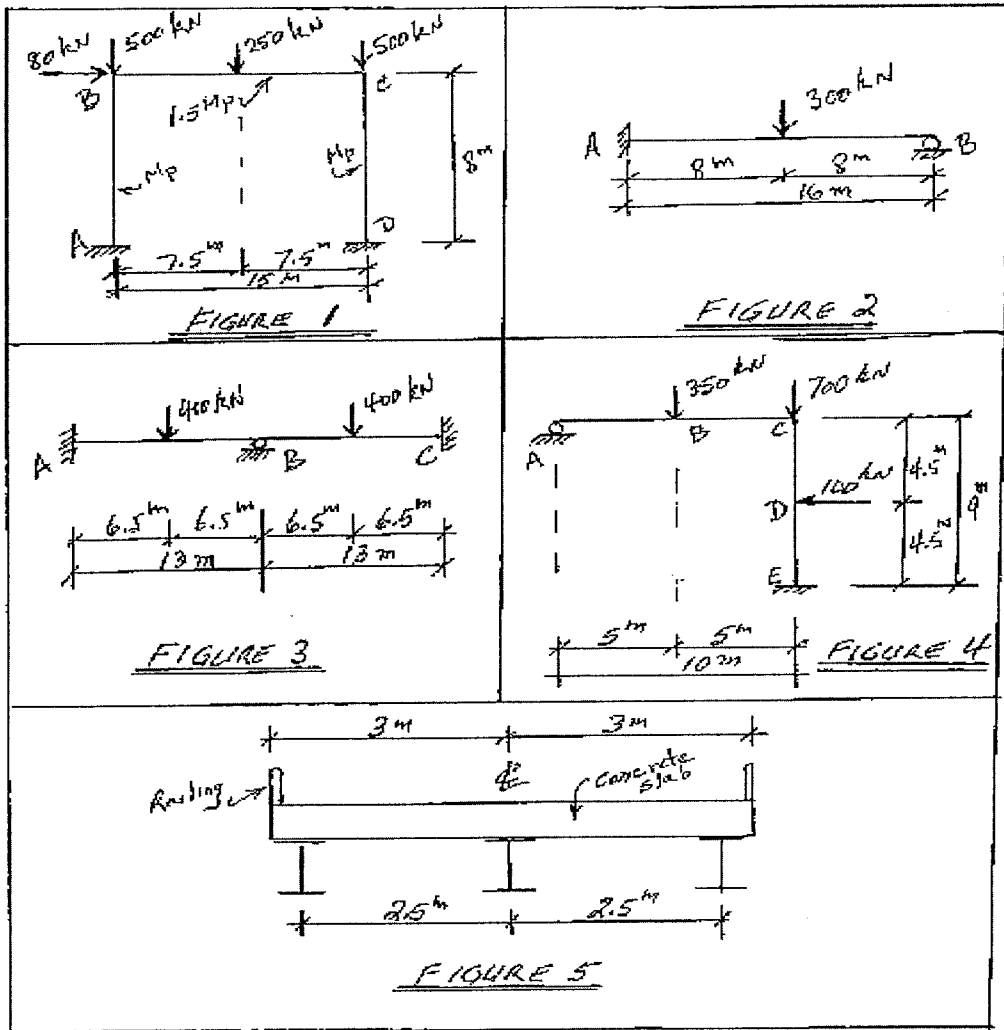 80 kN
500 kN
250 kN
500 kN
B
C
1.5 Mp
Mp
Mp
8 m
A
D
7.5 m
7.5 m
15 m
FIGURE 1
300 kN
A
B
8 m
8 m
16 m
FIGURE 2
400 kN
400 kN
A
B
C
6.5 m
6.5 m
6.5 m
6.5 m
13 m
13 m
FIGURE 3
350 kN
700 kN
A
B
C
100 kN
D
E
4.5 m
4.5 m
9 m
5 m
5 m
10 m
FIGURE 4
3 m
3 m
Railing
concrete
slab
2.5 m
2.5 m
FIGURE 5